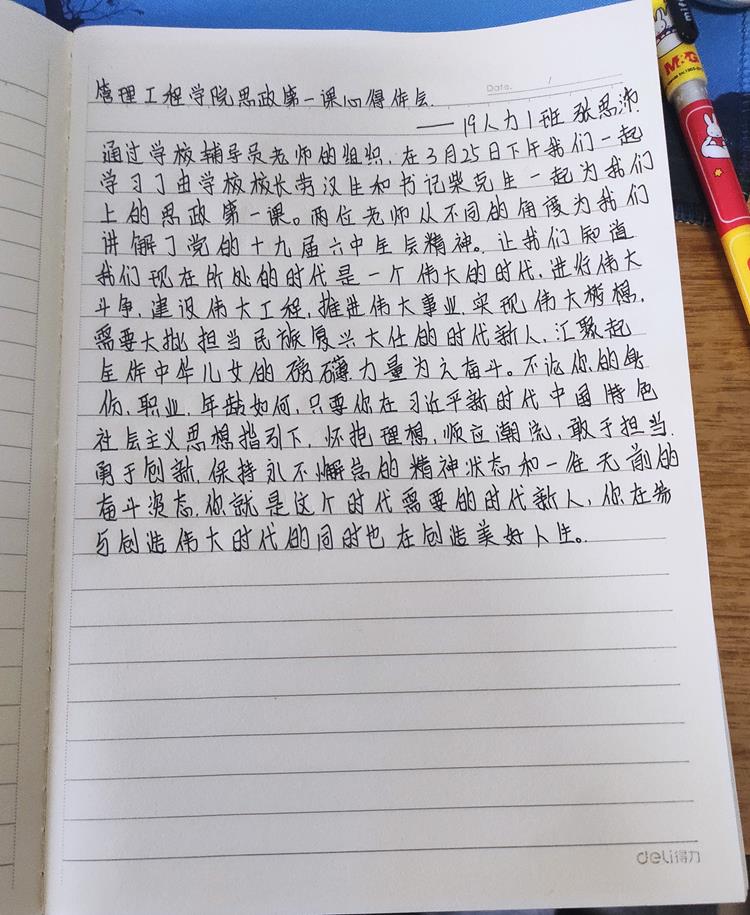 Date. /
管理工程学院思政第一课心得体会.
——19人力1班 张思沛
通过学校辅导员老师的组织,在3月25日下午我们一起
学习了由学校校长劳汉生和书记柴克生一起为我们
上的思政第一课。两位老师从不同的角度为我们
讲解了党的十九届六中全会精神。让我们知道
我们现在所处的时代是一个伟大的时代,进行伟大
斗争,建设伟大工程,推进伟大事业,实现伟大梦想,
需要大批担当民族复兴大任的时代新人,汇聚起
全体中华儿女的磅礴力量为之奋斗。不论你的身
份、职业、年龄如何,只要你在习近平新时代中国特色
社会主义思想指引下,怀抱理想,顺应潮流,敢于担当,
勇于创新,保持永不懈怠的精神状态和一往无前的
奋斗姿态,你就是这个时代需要的时代新人,你在参
与创造伟大时代的同时也在创造美好人生。
deli得力
M&G